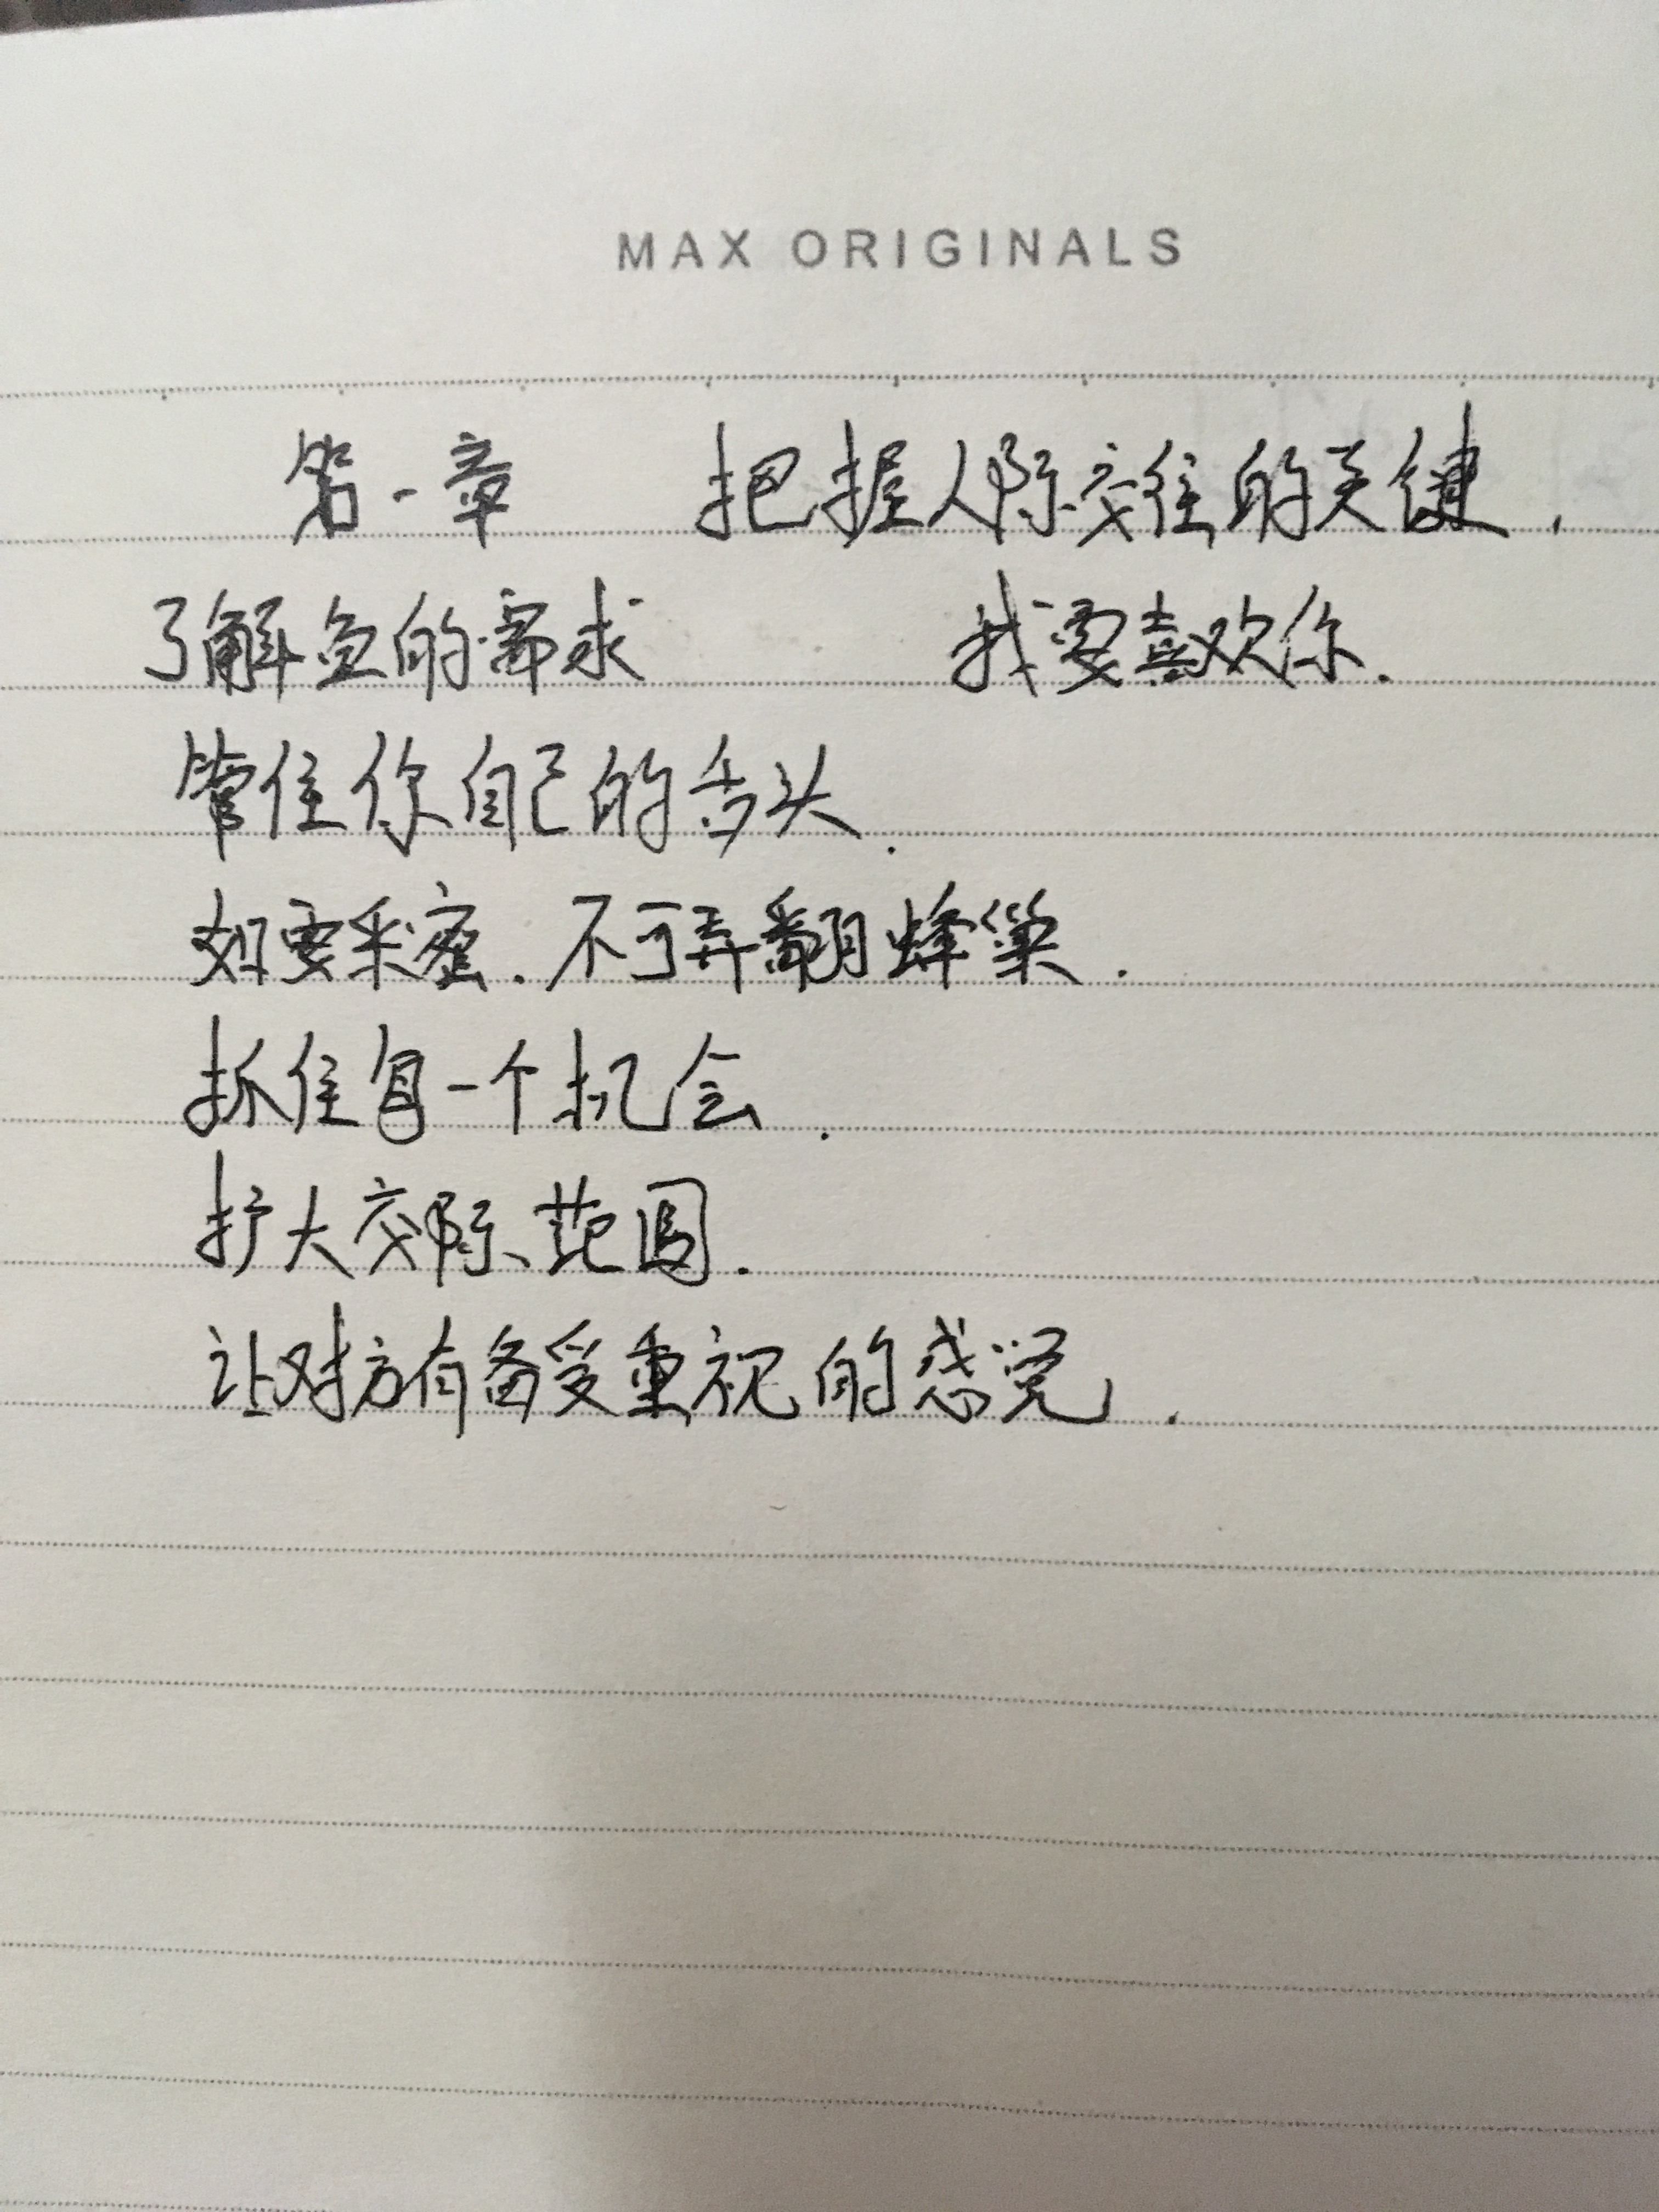 MAX ORIGINALS
第一章 把握人际交往的关键.
了解鱼的需求 我要喜欢你.
管住你自己的舌头.
如要采蜜.不可弄翻蜂巢.
抓住每一个机会.
扩大交际范围.
让对方有备受重视的感觉.